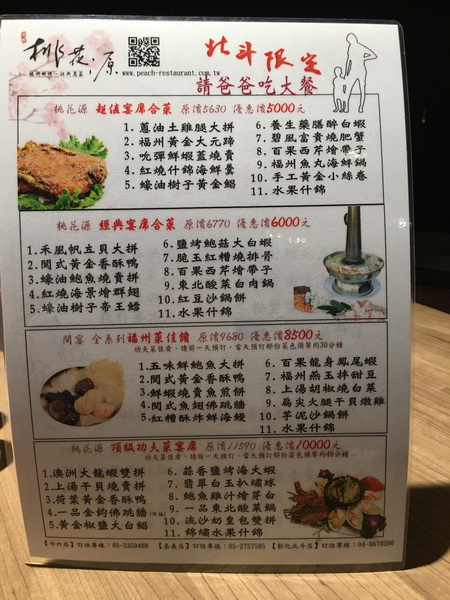 桃花源
福州料理・江浙名菜
www.peach-restaurant.com.tw
北斗限定
請爸爸吃大餐
桃花源 超值宴席合菜 原價5630 優惠價5000元
1. 蔥油土雞腿大拼
2. 福州黃金大元蹄
3. 吮彈鮮蝦蓋燒賣
4. 紅燒什錦海鮮羹
5. 蠔油樹子黃金鯧
6. 養生藥膳醉白蝦
7. 碧風富貴燒肥蟹
8. 百果西芹燴帶子
9. 福州魚丸海鮮鍋
10. 手工黃金小絲卷
11. 水果什錦
桃花源 經典宴席合菜 原價6770 優惠價6000元
1. 禾風帆立貝大拼
2. 閩式黃金香酥鴨
3. 蠔油鮑魚燒賣拼
4. 紅燒海景燴群翅
5. 蠔油樹子帝王鱈
6. 鹽烤鮑菇大白蝦
7. 脆玉紅糟燒排骨
8. 百果西芹燴帶子
9. 東北酸菜白肉鍋
10. 紅豆沙鍋餅
11. 水果什錦
閩宴 全系列福州菜佳餚 原價9680 優惠價8500元
功夫菜佳餚，請前一天預訂，當天預訂部份菜色備等約30分鐘
1. 五味鮮鮑魚大拼
2. 閩式黃金香酥鴨
3. 鮮蝦燒賣魚蒸餃
4. 閩式魚翅佛跳牆
5. 紅糟酥炸鮮海鰻
6. 百果龍身鳳尾蝦
7. 福州燕玉拌甜豆
8. 上湯胡椒燒白菜
9. 扁尖火腿干貝燉雞
10. 芋泥沙鍋餅
11. 水果什錦
桃花源 頂級功夫菜宴席 原價11590 優惠價10000元
功夫菜佳餚，請前一天預訂，當天預訂部份菜色備等約40分鐘
1. 澳洲大龍蝦雙拼
2. 上湯干貝燒黃魚
3. 荷葉黃金香酥鴨
4. 一品金鈎佛跳牆
5. 黃金椒鹽大白鯧
6. 蒜香鹽烤海大蝦
7. 翡翠白玉扒繡球
8. 鮑魚雞汁燴芽白
9. 一品東北酸菜鍋
10. 流沙奶皇包雙拼
11. 錦繡水果什錦
【斗六店】訂位專線：05-5350468 【嘉義店】訂位專線：05-2757585 【彰化北斗店】訂位專線：04-8870200